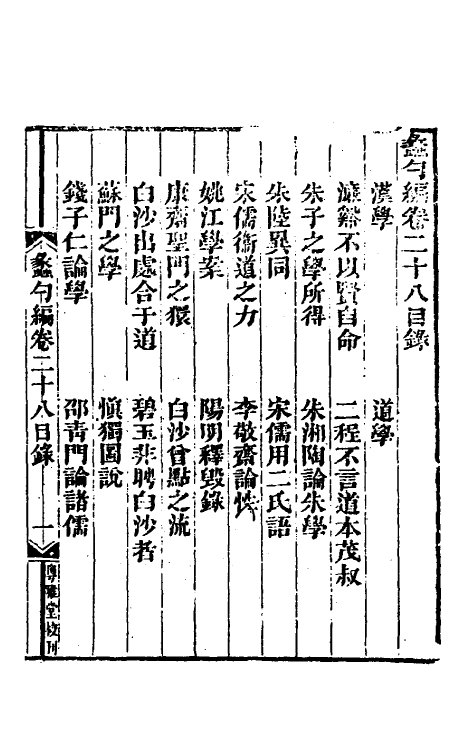 蠡勺編卷二十八目錄
漢學　道學
濂谿不以賢自命　二程不言道本茂叔
朱子之學所得　朱湘陶論朱學
朱陸異同　宋儒用二氏語
宋儒衞道之力　李敬齋論
姚江學案　陽明釋毀錄
康齋聖門之狷　白沙曾點之流
白沙出處合于道　碧玉非聘白沙者
蘇門之學　愼獨圖說
錢子仁論學　邵靑門論諸儒
蠡勺編卷二十八目錄　一　粵雅堂校刊